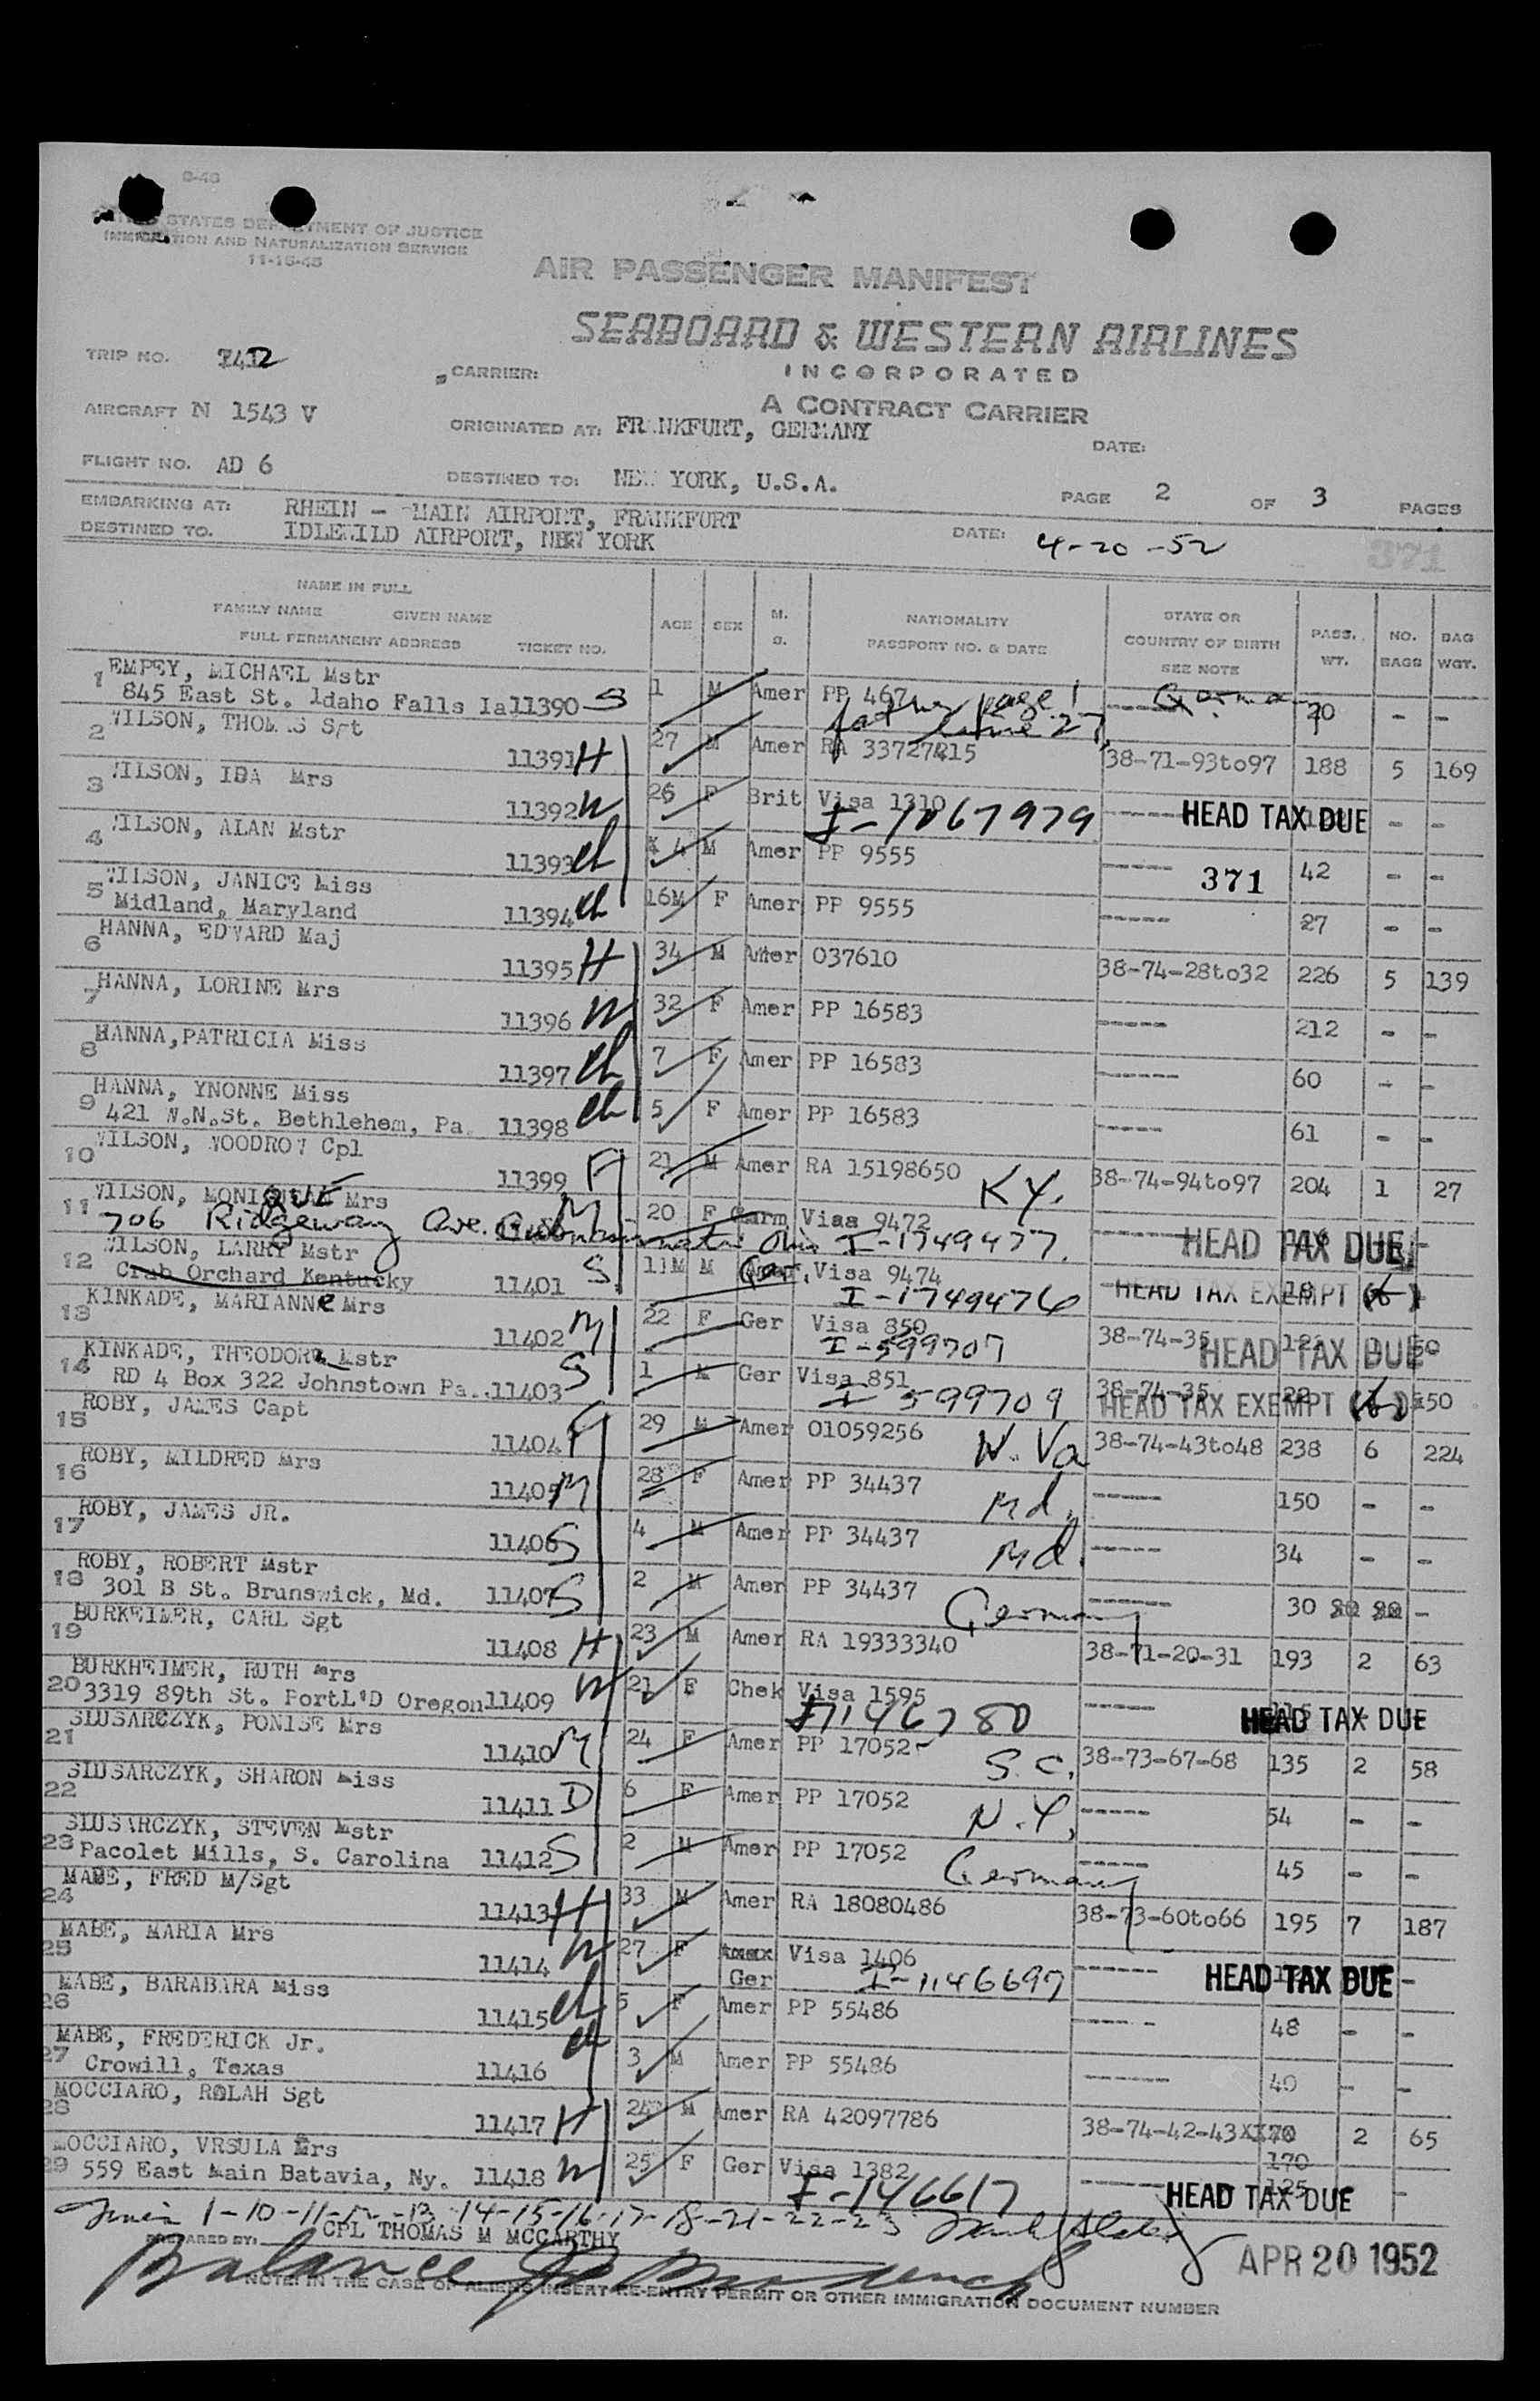 8-48
UNITED STATES DEPARTMENT OF JUSTICE
IMMIGRATION AND NATURALIZATION SERVICE
11-15-48
AIR PASSENGER MANIFEST
SEABOARD & WESTERN AIRLINES
INCORPORATED
A CONTRACT CARRIER
TRIP NO. 7412
CARRIER:
AIRCRAFT N 1543 V
ORIGINATED AT: FRANKFURT, GERMANY
DATE:
FLIGHT NO. AD 6
DESTINED TO: NEW YORK, U.S.A.
PAGE 2 OF 3 PAGES
EMBARKING AT: RHEIN - MAIN AIRPORT, FRANKFURT
DESTINED TO. IDLEWILD AIRPORT, NEW YORK
DATE: 4-20-52
371
NAME IN FULL
FAMILY NAME GIVEN NAME
FULL PERMANENT ADDRESS TICKET NO.
AGE SEX M. S.
NATIONALITY PASSPORT NO. & DATE
STATE OR COUNTRY OF BIRTH SEE NOTE
PASS. WT. NO. BAGS BAG WGT.
1 EMPEY, MICHAEL Mstr
845 East St. Idaho Falls Ia 11390 S 1 M Amer PP 467 ----- German 20 - -
father page 1 line 27
2 WILSON, THOMAS Sgt
11391 H 27 M Amer RA 33727215 38-71-93to97 188 5 169
3 WILSON, IDA Mrs
11392 W 26 F Brit Visa 1310 ----- HEAD TAX DUE - -
I-1067979
4 WILSON, ALAN Mstr
11393 ch 4 M Amer PP 9555 ----- 371 42 - -
5 WILSON, JANICE Miss
Midland, Maryland 11394 ch 16M F Amer PP 9555 ----- 27 - -
6 HANNA, EDWARD Maj
11395 H 34 M Amer O37610 38-74-28to32 226 5 139
7 HANNA, LORINE Mrs
11396 W 32 F Amer PP 16583 ----- 212 - -
8 HANNA,PATRICIA Miss
11397 ch 7 F Amer PP 16583 ----- 60 - -
9 HANNA, YNONNE Miss
421 W.N.St. Bethlehem, Pa. 11398 ch 5 F Amer PP 16583 ----- 61 - -
10 WILSON, WOODROW Cpl
11399 F 21 M Amer RA 15198650 KY. 38-74-94to97 204 1 27
11 WILSON, MONIQUE Mrs
706 Ridgeway Ave. M 20 F Germ Visa 9472 ----- HEAD TAX DUE -
Ohio I-1749477
12 WILSON, LARRY Mstr
Crab Orchard Kentucky 11401 S 11M M Ger. Visa 9474 HEAD TAX EXEMPT (6) 18
I-1749476
13 KINKADE, MARIANNe Mrs
11402 M 22 F Ger Visa 850 38-74-35 HEAD TAX DUE
I-599707
14 KINKADE, THEODORE Mstr
RD 4 Box 322 Johnstown Pa. 11403 S 1 M Ger Visa 851 38-74-35 HEAD TAX EXEMPT (6) 50
I-599709
15 ROBY, JAMES Capt
11404 F 29 M Amer O1059256 W. Va 38-74-43to48 238 6 224
16 ROBY, MILDRED Mrs
11405 M 28 F Amer PP 34437 Md. ----- 150 - -
17 ROBY, JAMES JR.
11406 S 4 M Amer PP 34437 Md. ----- 34 - -
18 ROBY, ROBERT Mstr
301 B St. Brunswick, Md. 11407 S 2 M Amer PP 34437 Germany ----- 30 -
19 BURKEIMER, CARL Sgt
11408 H 23 M Amer RA 19333340 38-71-20-31 193 2 63
20 BURKHEIMER, RUTH Mrs
3319 89th St. PortL'D Oregon 11409 W 21 F Chek Visa 1595 ----- HEAD TAX DUE
I1146780
21 SLUSARCZYK, PONISE Mrs
11410 M 24 F Amer PP 17052 S.C. 38-73-67-68 135 2 58
22 SLUSARCZYK, SHARON Miss
11411 D 6 F Amer PP 17052 N.Y. ----- 54 - -
23 SLUSARCZYK, STEVEN Mstr
Pacolet Mills, S. Carolina 11412 S 2 M Amer PP 17052 Germany ----- 45 - -
24 MABE, FRED M/Sgt
11413 H 33 M Amer RA 18080486 38-73-60to66 195 7 187
25 MABE, MARIA Mrs
11414 W 27 F Ger Visa 1406 ----- HEAD TAX DUE -
I-1146697
26 MABE, BARABARA Miss
11415 ch 5 F Amer PP 55486 ----- 48 - -
27 MABE, FREDERICK Jr.
Crowill, Texas 11416 ch 3 M Amer PP 55486 ----- 40 - -
28 MOCCIARO, ROLAH Sgt
11417 H 24 M Amer RA 42097786 38-74-42-43 170 2 65
29 MOCCIARO, VRSULA Mrs
559 East Main Batavia, Ny. 11418 W 25 F Ger Visa 1382 ----- 125 HEAD TAX DUE -
I-146617
1-10-11-12-13-14-15-16-17-18-21-22-23
PREPARED BY: CPL THOMAS M MCCARTHY
Balance
APR 20 1952
NOTE: IN THE CASE OF ALIENS INSERT RE-ENTRY PERMIT OR OTHER IMMIGRATION DOCUMENT NUMBER